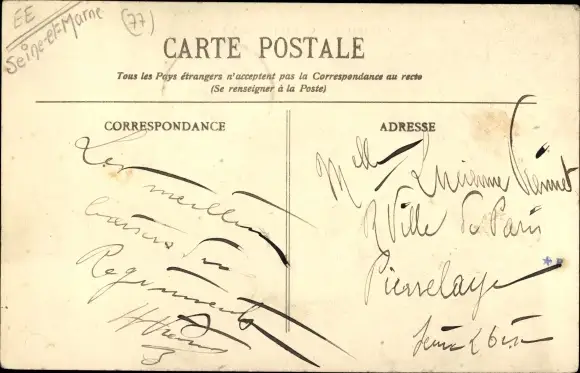 EE
Seine-et-Marne
(77)
CARTE POSTALE
Tous les Pays étrangers n'acceptent pas la Correspondance au recto
(Se renseigner à la Poste)
CORRESPONDANCE
ADRESSE
Les meilleurs
baisers du
Melle Lucienne
R Ville de Paris
Pierrelaye
Seine & Oise